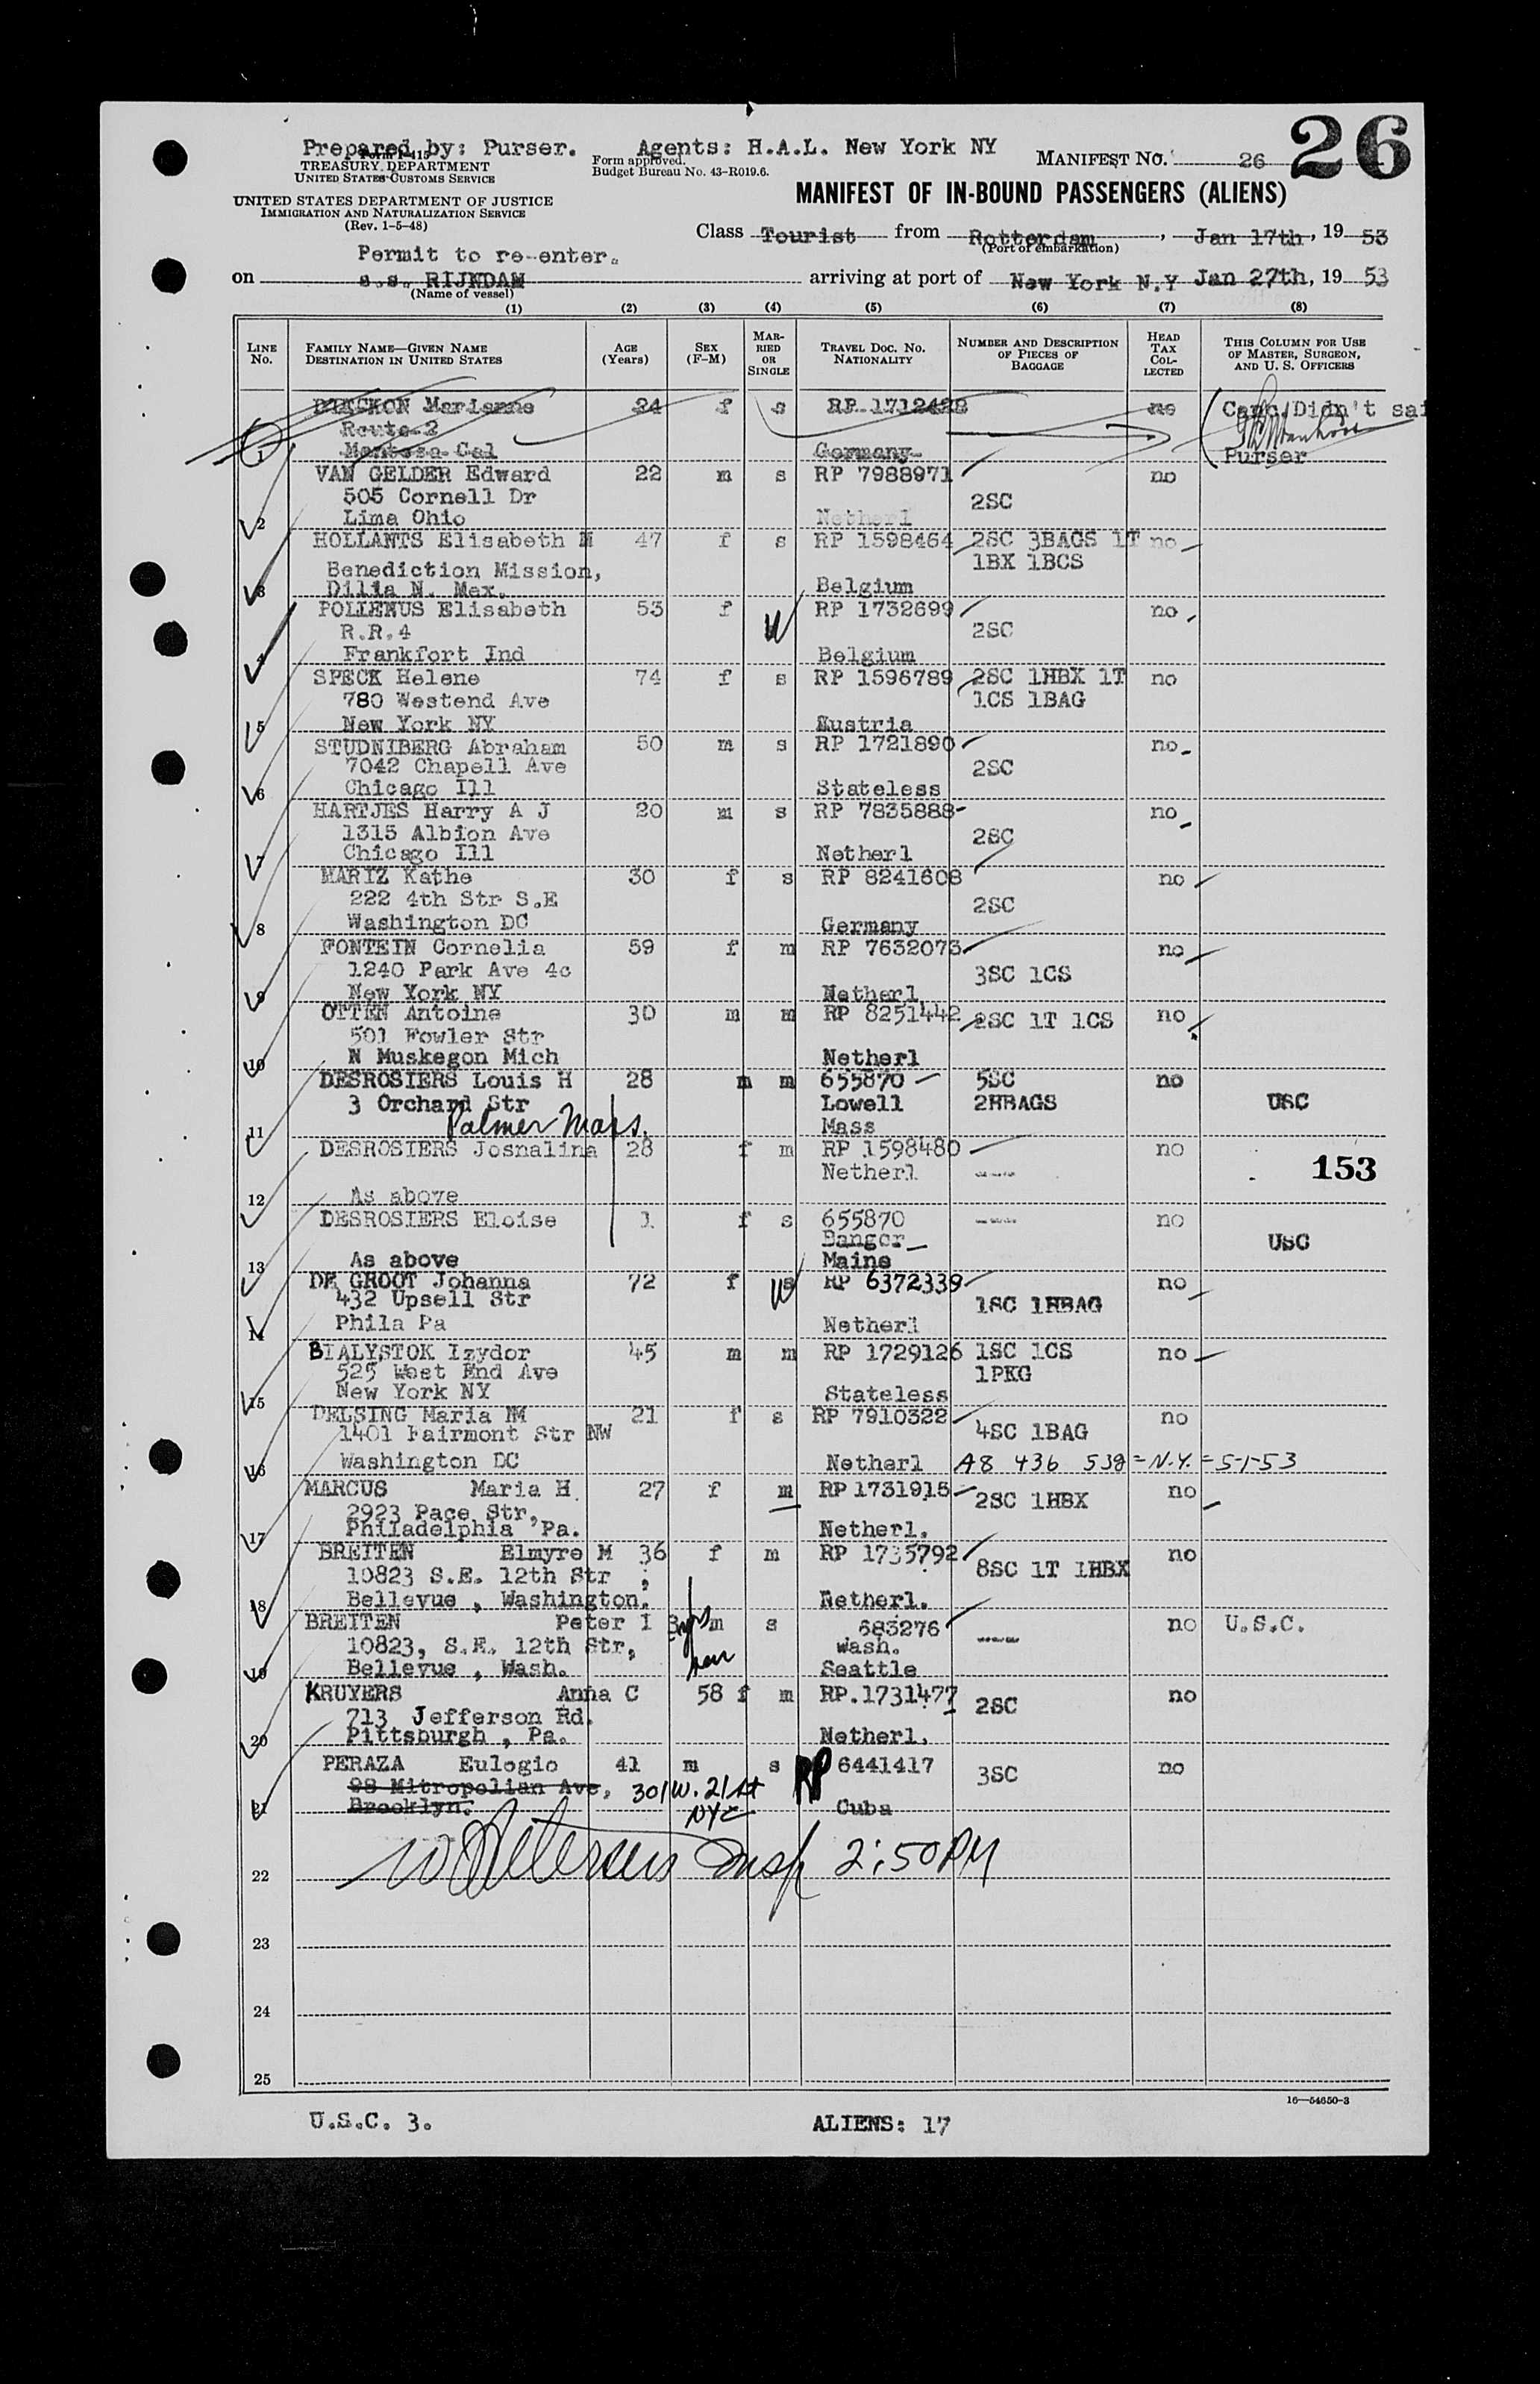 26
Prepared by: Purser. Agents: H.A.L. New York NY
Form I-415
TREASURY DEPARTMENT
UNITED STATES CUSTOMS SERVICE
Form approved.
Budget Bureau No. 43-R019.6.
MANIFEST NO. 26
UNITED STATES DEPARTMENT OF JUSTICE
IMMIGRATION AND NATURALIZATION SERVICE
(Rev. 1-5-48)
MANIFEST OF IN-BOUND PASSENGERS (ALIENS)
Class Tourist from Rotterdam, Jan 17th, 19 53
(Port of embarkation)
Permit to re-enter.
on s.s. RIJNDAM arriving at port of New York N.Y Jan 27th, 19 53
(Name of vessel)
(1) (2) (3) (4) (5) (6) (7) (8)
LINE NO. FAMILY NAME—GIVEN NAME DESTINATION IN UNITED STATES AGE (Years) SEX (F-M) MARRIED OR SINGLE TRAVEL DOC. NO. NATIONALITY NUMBER AND DESCRIPTION OF PIECES OF BAGGAGE HEAD TAX COLLECTED THIS COLUMN FOR USE OF MASTER, SURGEON, AND U. S. OFFICERS
Marianne 24 f s RP 1712422 no Canc. Didn't sai
Route 2
1 Cal Germany Purser
VAN GELDER Edward 22 m s RP 7988971 no
505 Cornell Dr 2SC
2 Lima Ohio Netherl
HOLLANTS Elisabeth M 47 f s RP 1598464 2SC 3BAGS 1T no
Benediction Mission, 1BX 1BCS
3 Dilia N. Mex. Belgium
POLLENUS Elisabeth 53 f W RP 1732699 no
R.R.4 2SC
4 Frankfort Ind Belgium
SPECK Helene 74 f s RP 1596789 2SC 1HBX 1T no
780 Westend Ave 1CS 1BAG
5 New York NY Austria
STUDNIBERG Abraham 50 m s RP 1721890 no
7042 Chapell Ave 2SC
6 Chicago Ill Stateless
HARTJES Harry A J 20 m s RP 7835888 no
1315 Albion Ave 2SC
7 Chicago Ill Netherl
MARTZ Kathe 30 f s RP 8241608 no
222 4th Str S.E 2SC
8 Washington DC Germany
FONTEIN Cornelia 59 f m RP 7632073 no
1240 Park Ave 4c 3SC 1CS
9 New York NY Netherl
OTTEN Antoine 30 m m RP 8251442 2SC 1T 1CS no
501 Fowler Str
10 N Muskegon Mich Netherl
DESROSIERS Louis H 28 m m 655870 5SC no
3 Orchard Str Lowell 2HBAGS USC
11 Palmer Mass. Mass
DESROSIERS Josnalina 28 f m RP 1598480 no
Netherl ---- 153
12 As above
DESROSIERS Eloise 1 f s 655870 ---- no
Bangor USC
13 As above Maine
DE GROOT Johanna 72 f W RP 6372339 no
432 Upsell Str 1SC 1HBAG
14 Phila Pa Netherl
BIALYSTOK Izydor 45 m m RP 1729126 1SC 1CS no
525 West End Ave 1PKG
15 New York NY Stateless
DELSING Maria MM 21 f s RP 7910322 no
1401 Fairmont Str NW 4SC 1BAG
16 Washington DC Netherl A8 436 538 = N.Y. = 5-1-53
MARCUS Maria H. 27 f m RP 1731915 2SC 1HBX no
2923 Pace Str,
17 Philadelphia Pa. Netherl.
BREITEN Elmyre M 36 f m RP 1735792 no
10823 S.E. 12th Str ; 8SC 1T 1HBX
18 Bellevue , Washington. Netherl.
BREITEN Peter I 3 yrs m s 683276 no U.S.C.
10823, S.E. 12th Str, Wash. ----
19 Bellevue , Wash. Seattle
KRUYERS Anna C 58 f m RP.1731477 2SC no
713 Jefferson Rd.
20 Pittsburgh , Pa. Netherl.
PERAZA Eulogio 41 m s RP 6441417 3SC no
98 Mitropolian Ave, 301 W. 21 St
21 Brooklyn. NYC Cuba
22 Insp 2:50 PM
23
24
25
16—54650-3
U.S.C. 3. ALIENS: 17